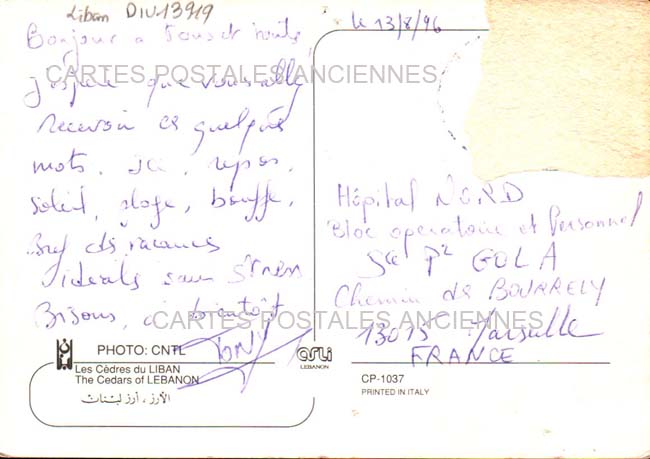 Liban DIV13919
le 13/8/96
Bonjour a tous et toute
CARTES POSTALES ANCIENNES
j'espère que vous allez
recevoir ces quelques
mots. Ici, repos,
soleil, plage, bouffe,
bref des vacances
idéales sans stress
Bisous, à bientôt
TONY
Hôpital NORD
Bloc opératoire et Personnel
Sce Pr GOLA
Chemin des BOURRELY
CARTES POSTALES ANCIENNES
13015 Marseille
FRANCE
PHOTO: CNTL
Les Cèdres du LIBAN
The Cedars of LEBANON
الأرز ، أرز لبنان
arli
LEBANON
CP-1037
PRINTED IN ITALY